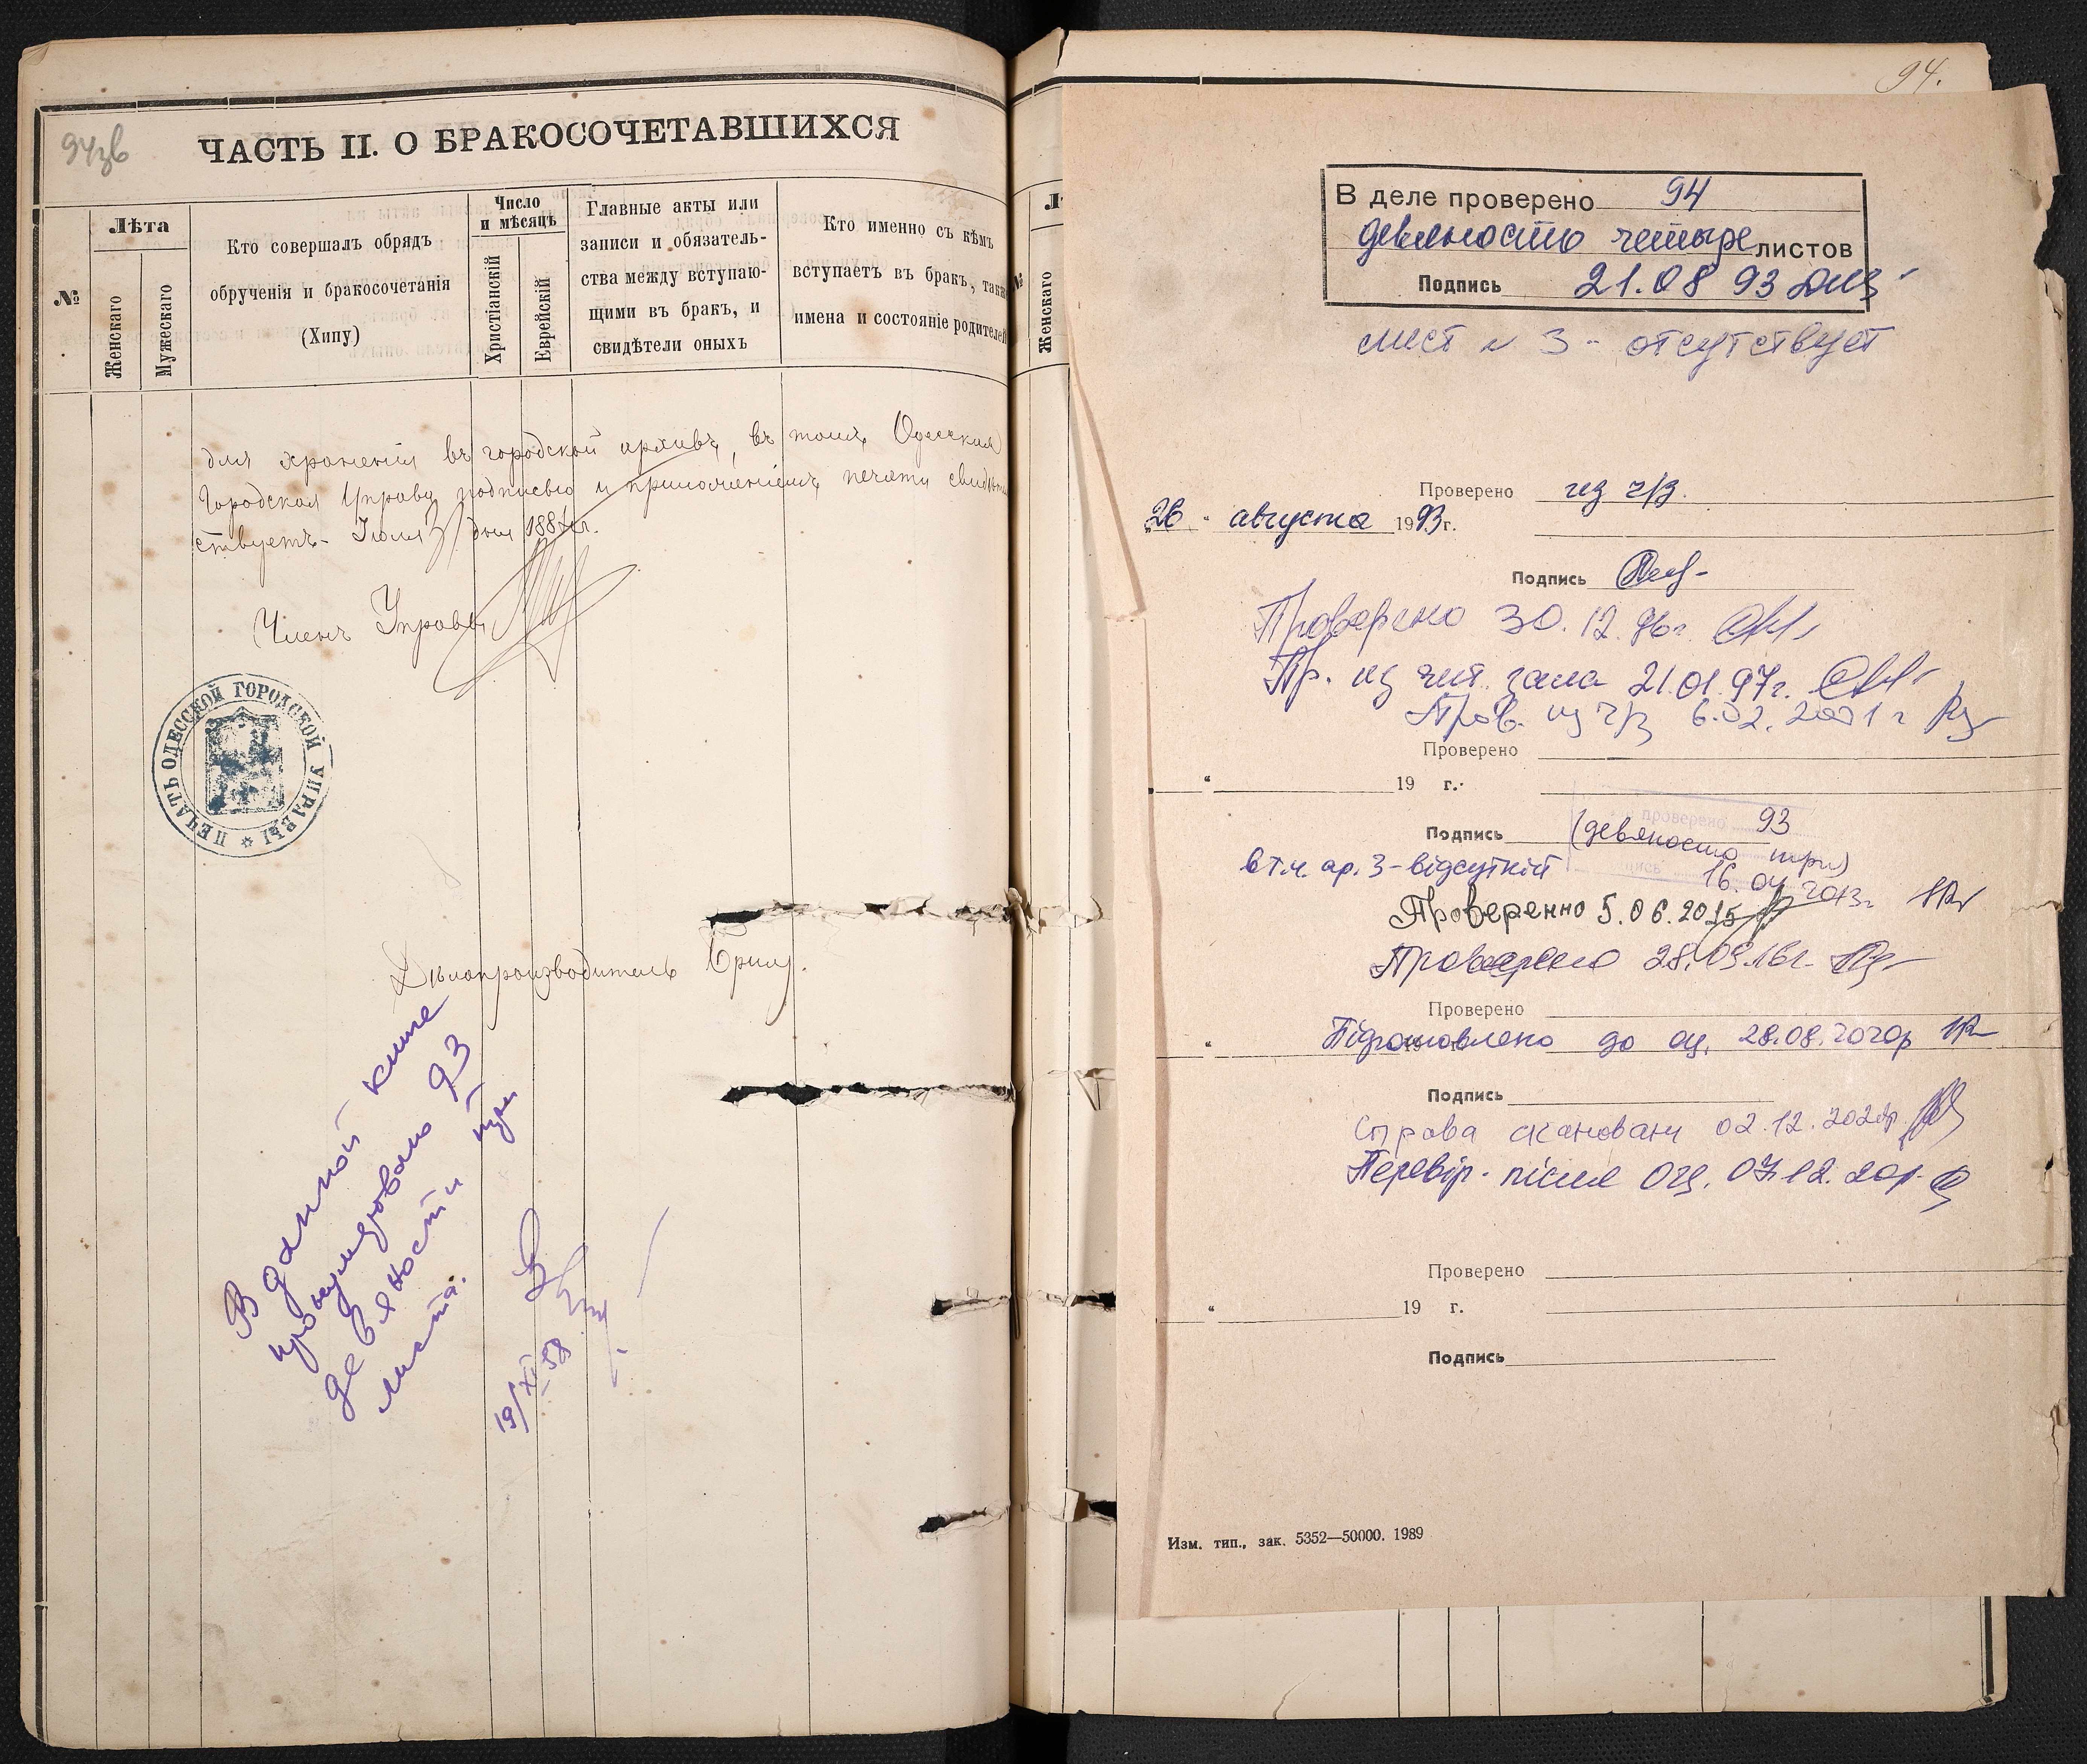 94зв
ЧАСТЬ II. О БРАКОСОЧЕТАВШИХСЯ
№
Лѣта
Женскаго
Мужескаго
Кто совершалъ обрядъ
обрученія и бракосочетанія
(Хипу)
Число
и мѣсяцъ
Христіанскій
Еврейскій
Главные акты или
записи и обязатель-
ства между вступаю-
щими въ бракъ, и
свидѣтели оныхъ
Кто именно съ кѣмъ
вступаетъ въ бракъ, также
имена и состояніе родителей
для храненія въ городской архивъ, въ томъ Одесская
Городская Управа подписью и приложеніемъ печати свидѣтель
ствуетъ- Іюля 31 дня 188 г.
Членъ Управы
ПЕЧАТЬ ОДЕССКОЙ ГОРОДСКОЙ УПРАВЫ
Дѣлопроизводитель
В данной книге
пронумеровано 93
девяности три
листа.
19/XI-58
94.
№
Женскаго
В деле проверено 94
девяносто четыре листов
Подпись 21.08 93
лист № 3 - отсутствует
Проверено из ч/з.
26 " августа 1993г.
Подпись
Проверено 30.12.96г.
Пр. из чит. зала 21.01.97г.
Пров. из ч/з 6.02.2001г
Проверено
" 19 г.
проверено 93
Подпись (девяносто три)
в т.ч. ар. 3 - відсутній
16.04 2013г.
Проверенно 5.06.2015
Проверено 28.09.16г.
Проверено
Підготовлено до оц. 28.08.2020р
" 19 г.
Подпись
Справа скановани 02.12.202р.
Перевір. після оц. 07.12.20р.
Проверено
" 19 г.
Подпись
Изм. тип., зак. 5352—50000. 1989